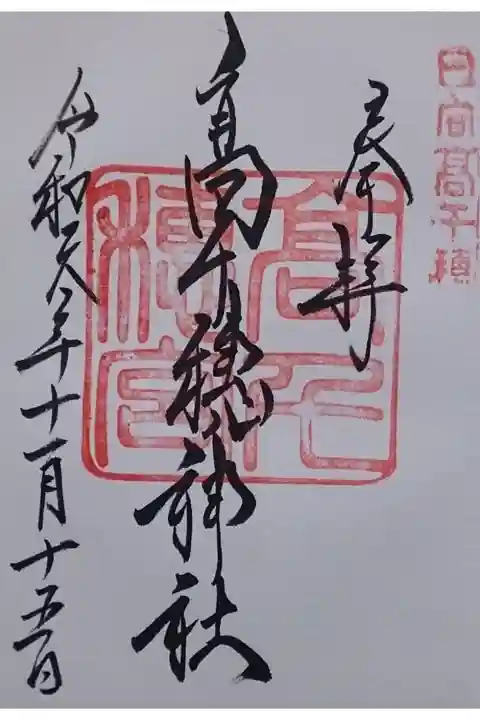 日向高千穂
奉拝
高千穂宮
高千穂神社
令和元年十一月十五日